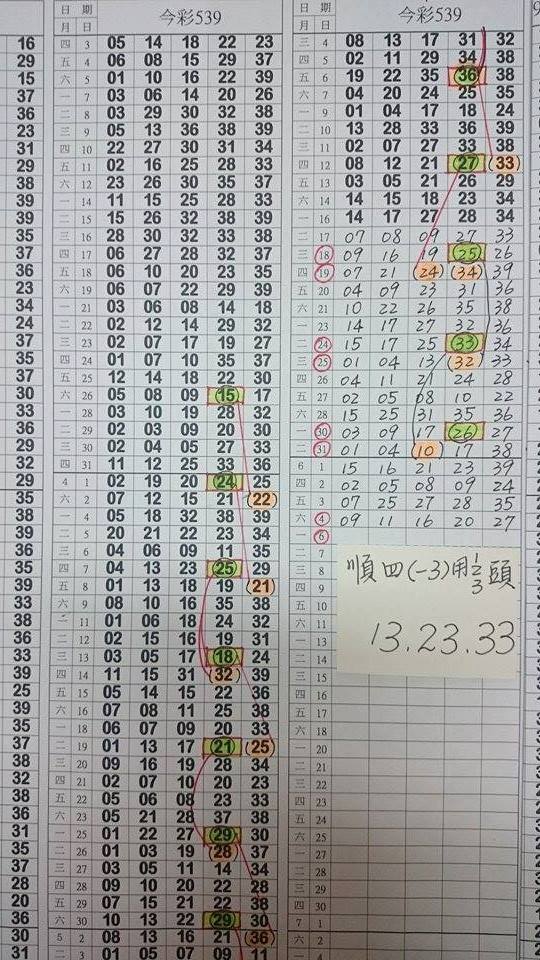 16
29
15
37
36
23
31
29
38
39
39
35
37
36
23
34
24
37
35
37
30
33
30
35
32
29
35
38
39
36
35
39
33
38
36
33
39
25
39
35
37
38
32
38
36
31
35
37
28
29
36
30
31
日 期 今彩539
月 日
四 3 05 14 18 22 23
五 4 06 08 15 29 37
六 5 01 10 16 22 39
一 7 03 06 14 20 26
二 8 03 29 30 32 38
三 9 05 13 36 38 39
四 10 22 27 30 31 34
五 11 02 16 25 28 33
六 12 23 26 30 35 37
一 14 11 15 25 28 33
二 15 15 26 32 38 39
三 16 28 30 32 33 38
四 17 06 27 28 32 37
五 18 06 10 20 23 35
六 19 06 07 22 29 39
一 21 03 06 08 14 18
二 22 02 12 14 29 32
三 23 02 07 17 19 27
四 24 01 07 10 35 37
五 25 12 14 18 22 30
六 26 05 08 09 15 17
一 28 03 10 19 28 32
二 29 02 03 09 20 30
三 30 02 04 05 27 33
四 31 11 12 25 33 36
4 1 02 19 20 24 25
六 2 07 12 15 21 22
一 4 05 18 32 38 39
二 5 20 21 22 23 34
三 6 04 06 09 11 35
四 7 04 13 23 25 29
五 8 01 13 18 19 21
六 9 08 10 16 35 38
一 11 01 06 18 24 32
二 12 02 15 16 19 31
三 13 03 05 17 18 24
四 14 11 15 31 32 39
五 15 05 14 15 22 36
六 16 07 08 11 25 38
一 18 06 07 09 20 33
二 19 01 13 17 21 25
三 20 09 16 19 28 34
四 21 02 07 10 20 23
五 22 05 06 08 23 33
六 23 05 21 28 37 38
一 25 01 22 27 29 30
二 26 01 03 19 28 37
三 27 03 05 11 14 34
四 28 09 10 20 22 28
五 29 07 15 21 22 38
六 30 10 13 22 29 30
5 2 08 13 16 21 36
二 3 01 05 07 09 11
日 期 今彩539
月 日
三 4 08 13 17 31 32
四 5 02 11 29 34 38
五 6 19 22 35 36 38
六 7 04 20 24 25 35
一 9 01 04 17 18 24
二 10 13 28 33 36 39
三 11 02 07 27 33 38
四 12 08 12 21 27 33
五 13 03 05 21 26 29
六 14 14 15 18 23 34
一 16 14 17 27 28 34
二 17 07 08 09 27 33
三 18 09 16 19 25 26
四 19 07 21 24 34 39
五 20 04 09 23 31 36
六 21 10 22 26 35 38
一 23 14 17 27 32 36
二 24 15 17 25 33 34
三 25 01 04 13 32 33
四 26 04 11 21 24 28
五 27 02 05 08 10 22
六 28 15 25 31 35 36
一 30 03 09 17 26 27
二 31 01 04 10 17 38
6 1 15 16 21 23 39
四 2 02 05 08 09 24
五 3 07 25 27 28 35
六 4 09 11 16 20 27
一 6
二 7
三 8
四 9
五 10
六 11
一 13
二 14
三 15
四 16
五 17
六 18
一 20
二 21
三 22
四 23
五 24
六 25
一 27
二 28
三 29
四 30
7 1
六 2
一 4
順四(-3)用1/2/3頭
13.23.33